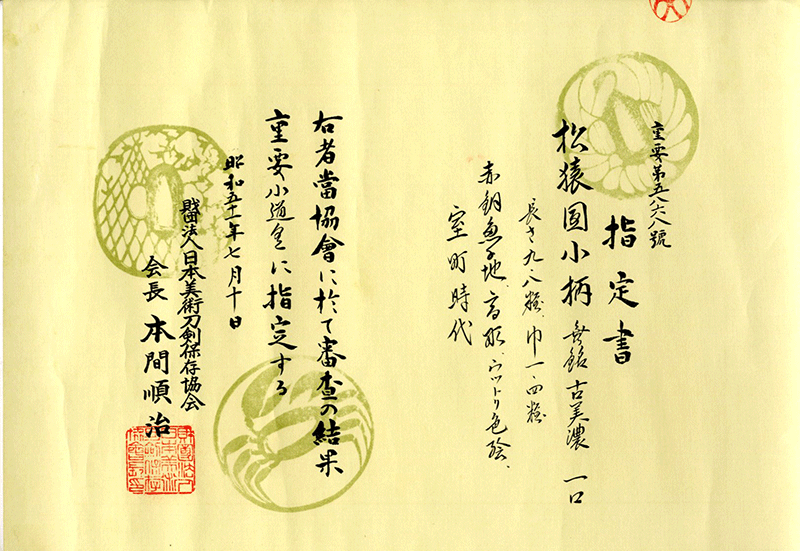 重要第五八六八號
指定書
松猿図小柄 無銘 古美濃 一口
長さ九・八糎、巾一・四糎
赤銅魚子地、高彫、ウットリ色絵、
室町時代
右者當協會に於て審査の結果
重要小道具に指定する
昭和五十一年七月十日
財団法人日本美術刀剣保存協会
会長 本間順治